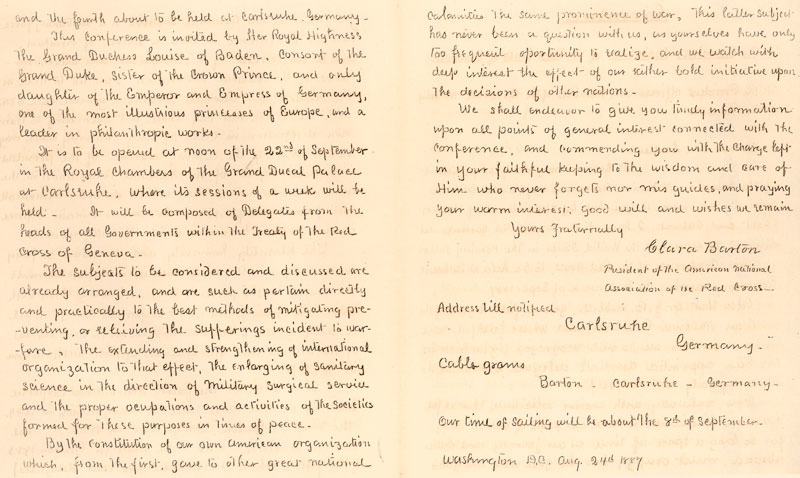 and the fourth about to be held at Carlsruhe. Germany-
This conference is invited by Her Royal Highness
The Grand Duchess Louise of Baden, Consort of the
Grand Duke, sister of the Crown Prince, and only
daughter of the Emperor and Empress of Germany,
one of the most illustrious princesses of Europe, and a
leader in philanthropic works-
It is to be opened at noon of the 22nd of September
in the Royal Chambers of the Grand Ducal Palace
at Carlsruhe, where its sessions of a week will be
held- It will be composed of Delegates from the
heads of all Governments within the Treaty of the Red
Cross of Geneva-
The subjects to be considered and discussed are
already arranged, and are such as pertain directly
and practically to the best methods of mitigating pre-
-venting, or relieving the sufferings incident to war-
-fare, The extending and strengthening of international
organization to that effect, The enlarging of sanitary
science in the direction of military surgical service
and the proper ocupations and activities of the Societies
formed for these purposes in times of peace-
By the constitution of our own American organization
which, from the first, gave to other great national
calamities the same prominence of war, This latter subject
has never been a question with us, as yourselves have only
too frequent oportunity to realize, and we watch with
deep interest the effect of our rather bold initiative upon
the decisions of other nations-
We shall endeavor to give you timely information
upon all points of general interest connected with the
conference, and commending you with the Charge left
in your faithful keeping to the wisdom and care of
Him who never forgets nor mis guides, and praying
your warm interest, good will and wishes we remain
Yours Fraternally
Clara Barton
President of the American National
Association of the Red Cross-
Address till notified
Carlsruhe
Germany-
Cable grams
Barton - Carlsruhe - Germany-
Our time of sailing will be about the 8th of September-
Washington D.C. Aug. 24th 1887